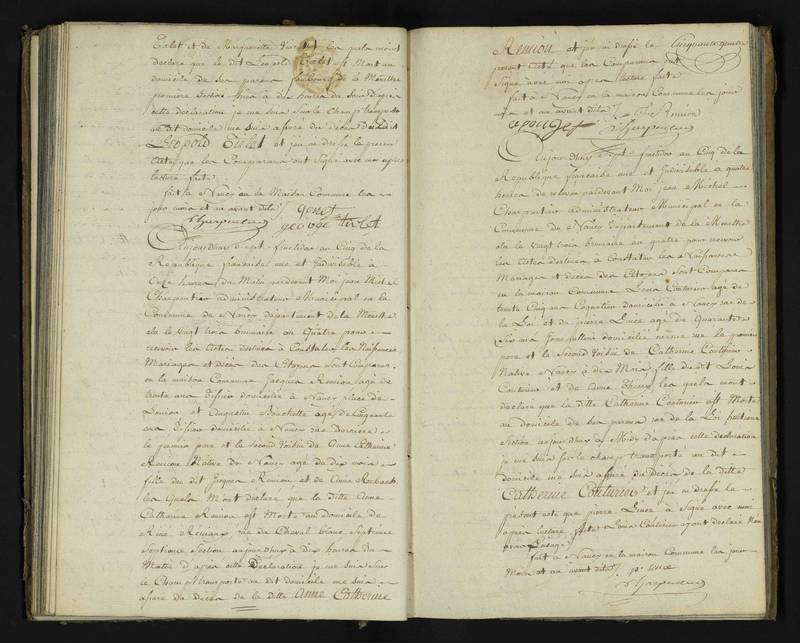 Tirlet et de Marguerite les quels m'ont
déclaré que le dit Léopold Tirlet est Mort au
domicile de ses parens faubourg de la Meurthe
première Section hier à dix heures du Soir D'après
cette déclaration je me suis Sur le Champ transporté
au Dit domicile me suis assuré du Décès du dit
Léopold Tirlet et j'en ai dressé le présent
acte que les Comparans ont Signé avec moi après
lecture faite
fait à Nancy en la Maison Commune les
jour mois et an avant dits
Charpentier george tirlet
Aujourdhuy Sept fructidor au Cinq de la
République française une et Indivisible à
Onze heures du Matin pardevant Moi jean Michel
Charpentier administrateur Municipal en la
Commune de Nancy département de la Meurthe
élu le Vingt trois brumaire an Quatre pour
recevoir les actes destinés à Constater les Naissances
Mariages et Décès des Citoyens Sont Comparus
en la maison Commune Jacques Remion agé de
trente ans domicilié à Nancy place de
et Augustin Bouchotte agé de Cinquante
ans domicilié à Nancy rue Derrière
le premier pere et le second Voisin de Anne Catherine
Remion Native de Nancy agé de Dix mois
fille du dit Jacques Remion et de Anne
les Quels M'ont déclaré que la ditte Anne
Catherine Remion est Morte au domicile de
rue du Cheval blanc Septième
Section aujourdhuy à Dix heures du
Matin D'après cette Déclaration je me suis sur
le Champ transporté au dit domicile me suis
assuré du Décès de la ditte Anne Catherine
Remion et j'en ai dressé le Cinquante quatre
présent Acte que les Comparans ont
Signé avec moi après lecture faite
fait à Nancy en la maison Commune les jour
mois et an avant dits Remion
Charpentier
Aujourdhuy Sept fructidor au Cinq de la
République française une et Indivisible à quatre
heures de relevée pardevant Moi jean Michel
Charpentier administrateur Municipal en la
Commune de Nancy département de la Meurthe
élu le Vingt trois brumaire an quatre pour recevoir
les Actes destinés à Constater les Naissances
Mariages et décès des Citoyens Sont Comparus
en la maison Commune Louis Couturier agé de
trente Cinq ans domicilié à Nancy rue de
la Loi et de pierre Lincé agé de Quarante
Six ans domicilié même rue le premier
pere et le Second Voisin de Catherine Couturier
Native de Nancy agé de Mois fille du dit Louis
Couturier et de Anne les quels m'ont
déclaré que la ditte Catherine Couturier est Morte
au domicile de ses parens rue de la Loi huitieme
Section aujourdhuy à Midy d'après cette déclaration
je me suis sur le champ transporté au dit
domicile me suis assuré du Décès de la ditte
Catherine Couturier et j'en ai dressé le
présent acte que pierre Lincé a Signé avec moi
après lecture faite Louis Couturier ayant déclaré
l'usage
fait à Nancy en la maison Commune les jour
Mois et an avant dits
Charpentier